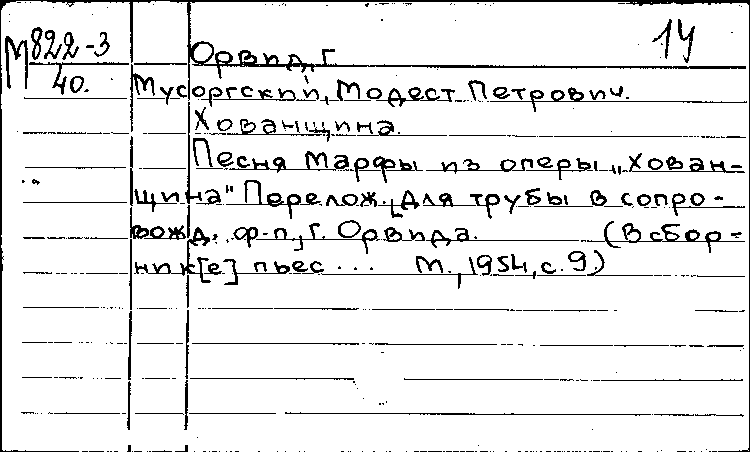 М 822-3
40.
Орвид, Г.
14
Мусоргский, Модест Петрович.
Хованщина.
Песня Марфы из оперы „Хован-
щина" Перелож. [для трубы в сопро-
вожд. ф-п., Г. Орвида. (В сбор-
ник[е] пьес ... М., 1954, с. 9.)